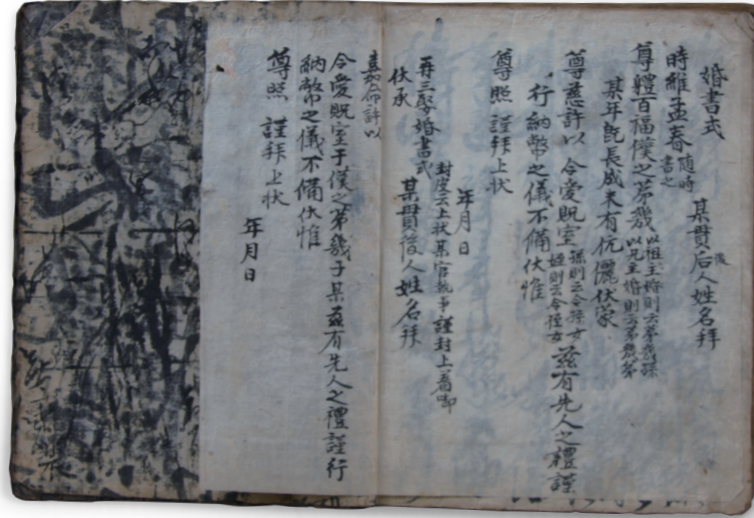 婚書式
某貫后人姓名拜
後
時維孟春隨時書之
尊體百福僕之第幾以祖主婚則云第幾孫以兄主婚則云第幾弟
某年旣長成未有伉儷伏蒙
尊慈許以 令愛貺室孫則云令孫女姪則云令侄女玆有先人之禮謹
行納幣之儀不備伏惟
尊照 謹拜上狀
年月日
封皮云上狀某官執事謹封上着啣
再三娶婚書式 某貫後人姓名拜
伏承
嘉命許以
令愛貺室于僕之第幾子某玆有先人之禮謹行
納幣之儀不備伏惟
尊照 謹拜上狀
年月日